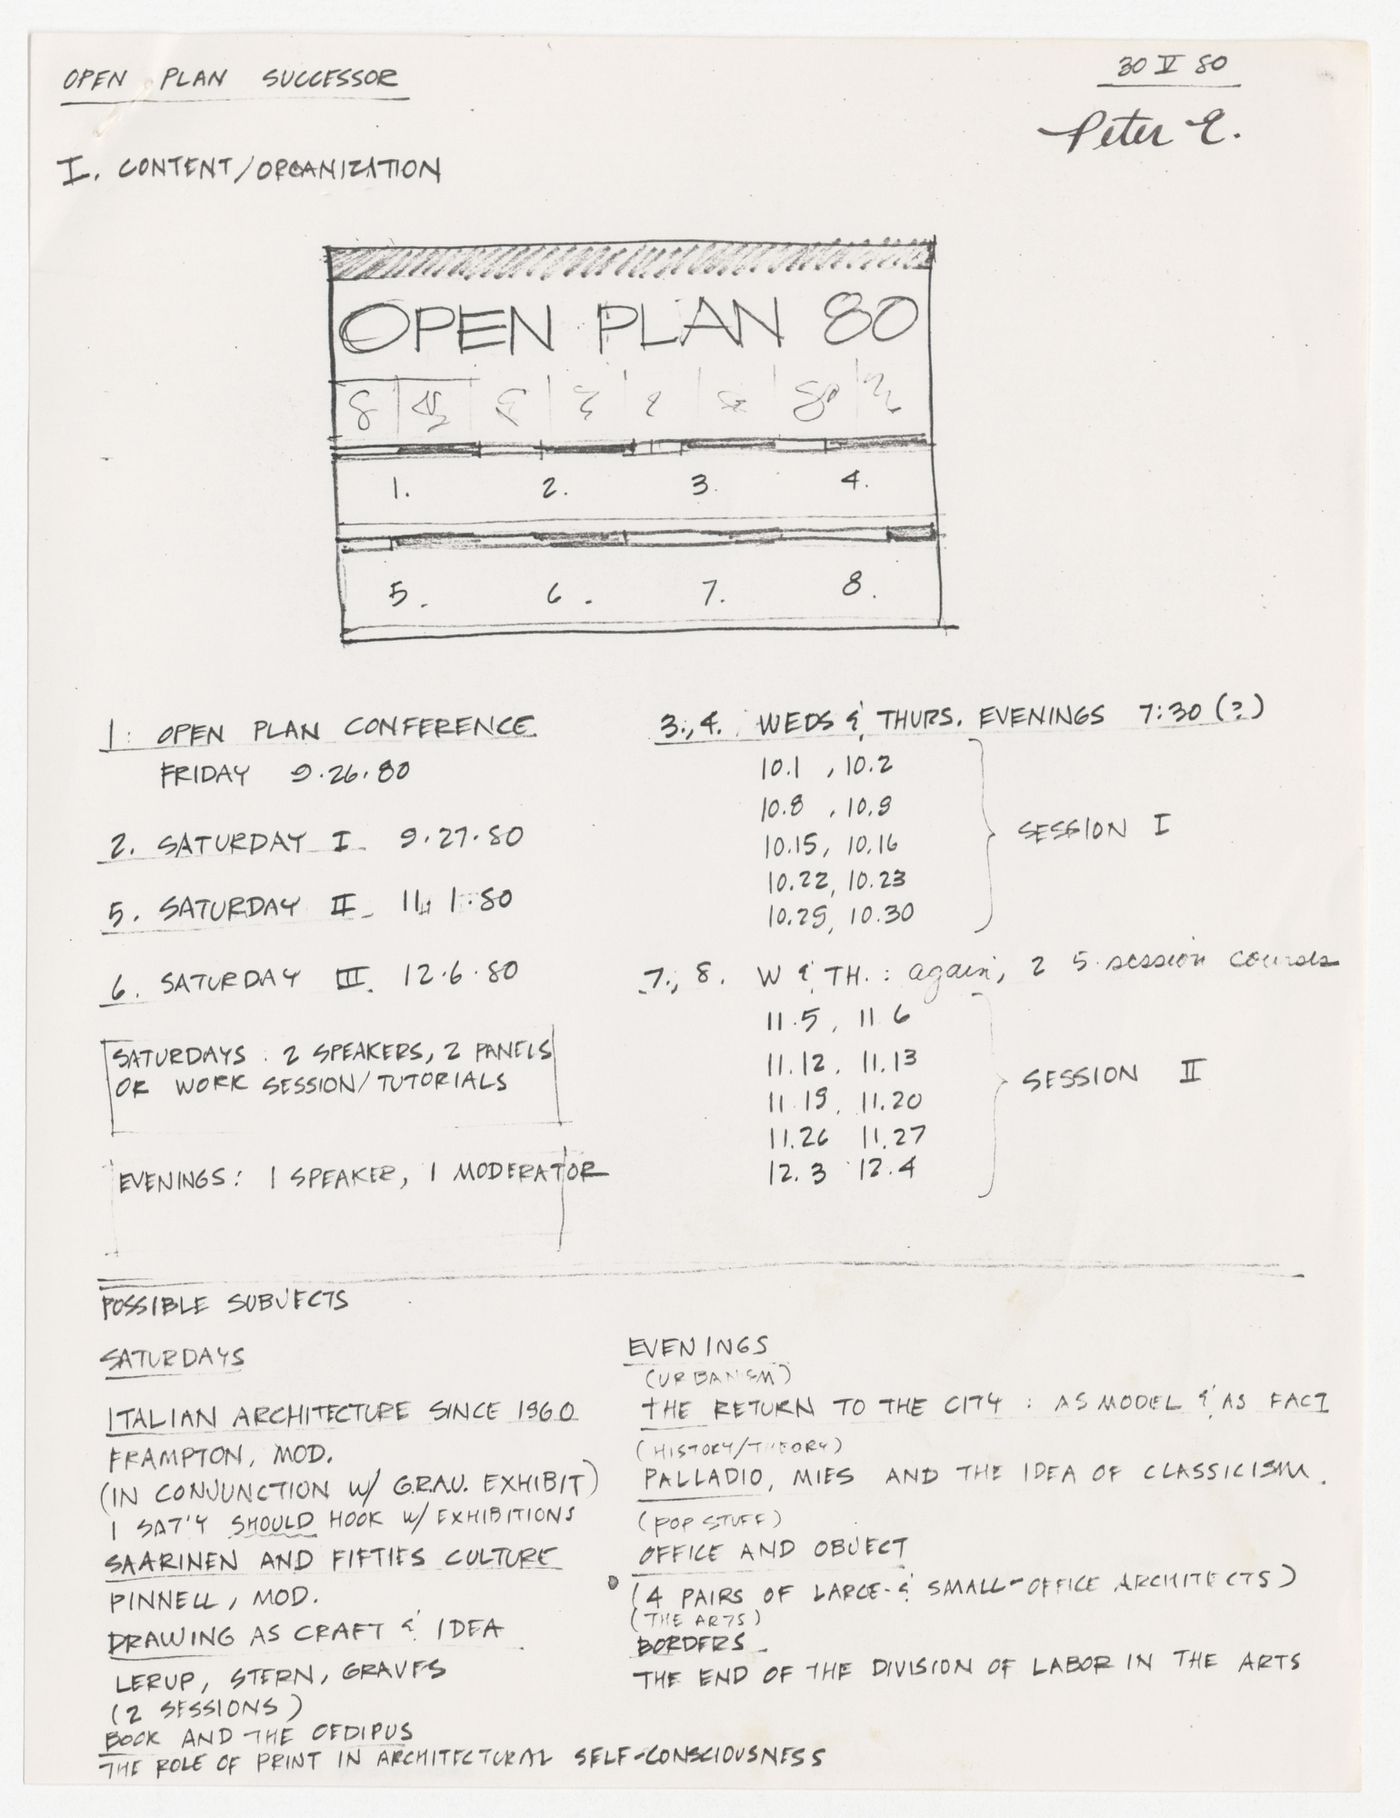 OPEN PLAN SUCCESSOR
30 V 80
Peter E.
I. CONTENT/ORGANIZATION
OPEN PLAN 80
1. 2. 3. 4.
5. 6. 7. 8.
1. OPEN PLAN CONFERENCE
FRIDAY 9.26.80
2. SATURDAY I 9.27.80
5. SATURDAY II 11.1.80
6. SATURDAY III 12.6.80
SATURDAYS: 2 SPEAKERS, 2 PANELS
OR WORK SESSION/TUTORIALS
EVENINGS: 1 SPEAKER, 1 MODERATOR
3., 4. WEDS & THURS. EVENINGS 7:30 (?)
10.1, 10.2
10.8, 10.9
10.15, 10.16
10.22, 10.23
10.29, 10.30
SESSION I
7., 8. W & TH.: again, 2 5-session courses
11.5, 11.6
11.12, 11.13
11.19, 11.20
11.26 11.27
12.3 12.4
SESSION II
POSSIBLE SUBJECTS
SATURDAYS
ITALIAN ARCHITECTURE SINCE 1960
FRAMPTON, MOD.
(IN CONJUNCTION W/ G.R.A.U. EXHIBIT)
1 SAT'Y SHOULD HOOK W/ EXHIBITIONS
SAARINEN AND FIFTIES CULTURE
PINNELL, MOD.
DRAWING AS CRAFT & IDEA
LERUP, STERN, GRAVES
(2 SESSIONS)
BOOK AND THE OEDIPUS
THE ROLE OF PRINT IN ARCHITECTURAL SELF-CONSCIOUSNESS
EVENINGS
(URBANISM)
THE RETURN TO THE CITY: AS MODEL & AS FACT
(HISTORY/THEORY)
PALLADIO, MIES AND THE IDEA OF CLASSICISM.
(POP STUFF)
OFFICE AND OBJECT
(4 PAIRS OF LARGE- & SMALL-OFFICE ARCHITECTS)
(THE ARTS)
BORDERS
THE END OF THE DIVISION OF LABOR IN THE ARTS